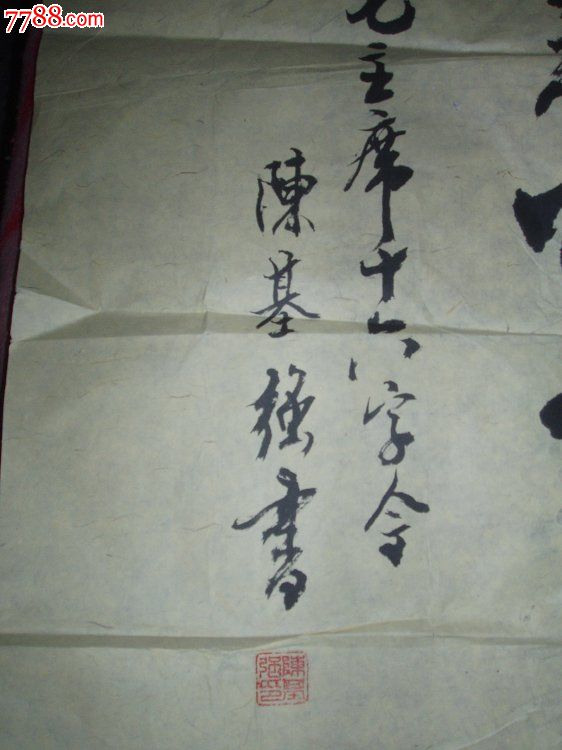 7788.com
毛主席十六字令
陳基強書
陳基
強印